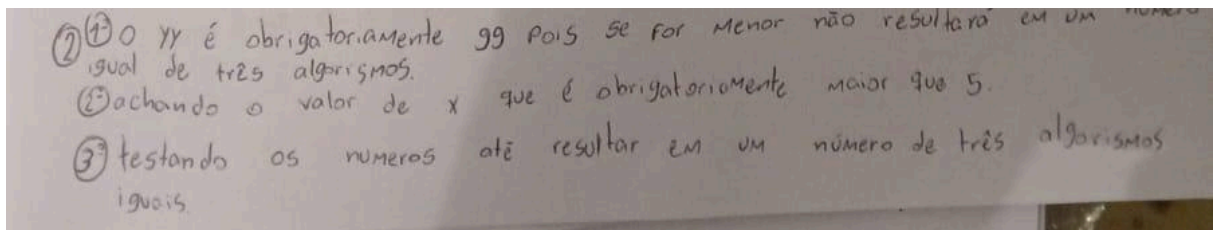 ② 1º O yy é obrigatoriamente 99 Pois se for menor não resultará em um número
igual de três algorismos.
2º achando o valor de x que é obrigatoriomente maior que 5.
3º testando os numeros até resultar em um número de três algorismos
iguais